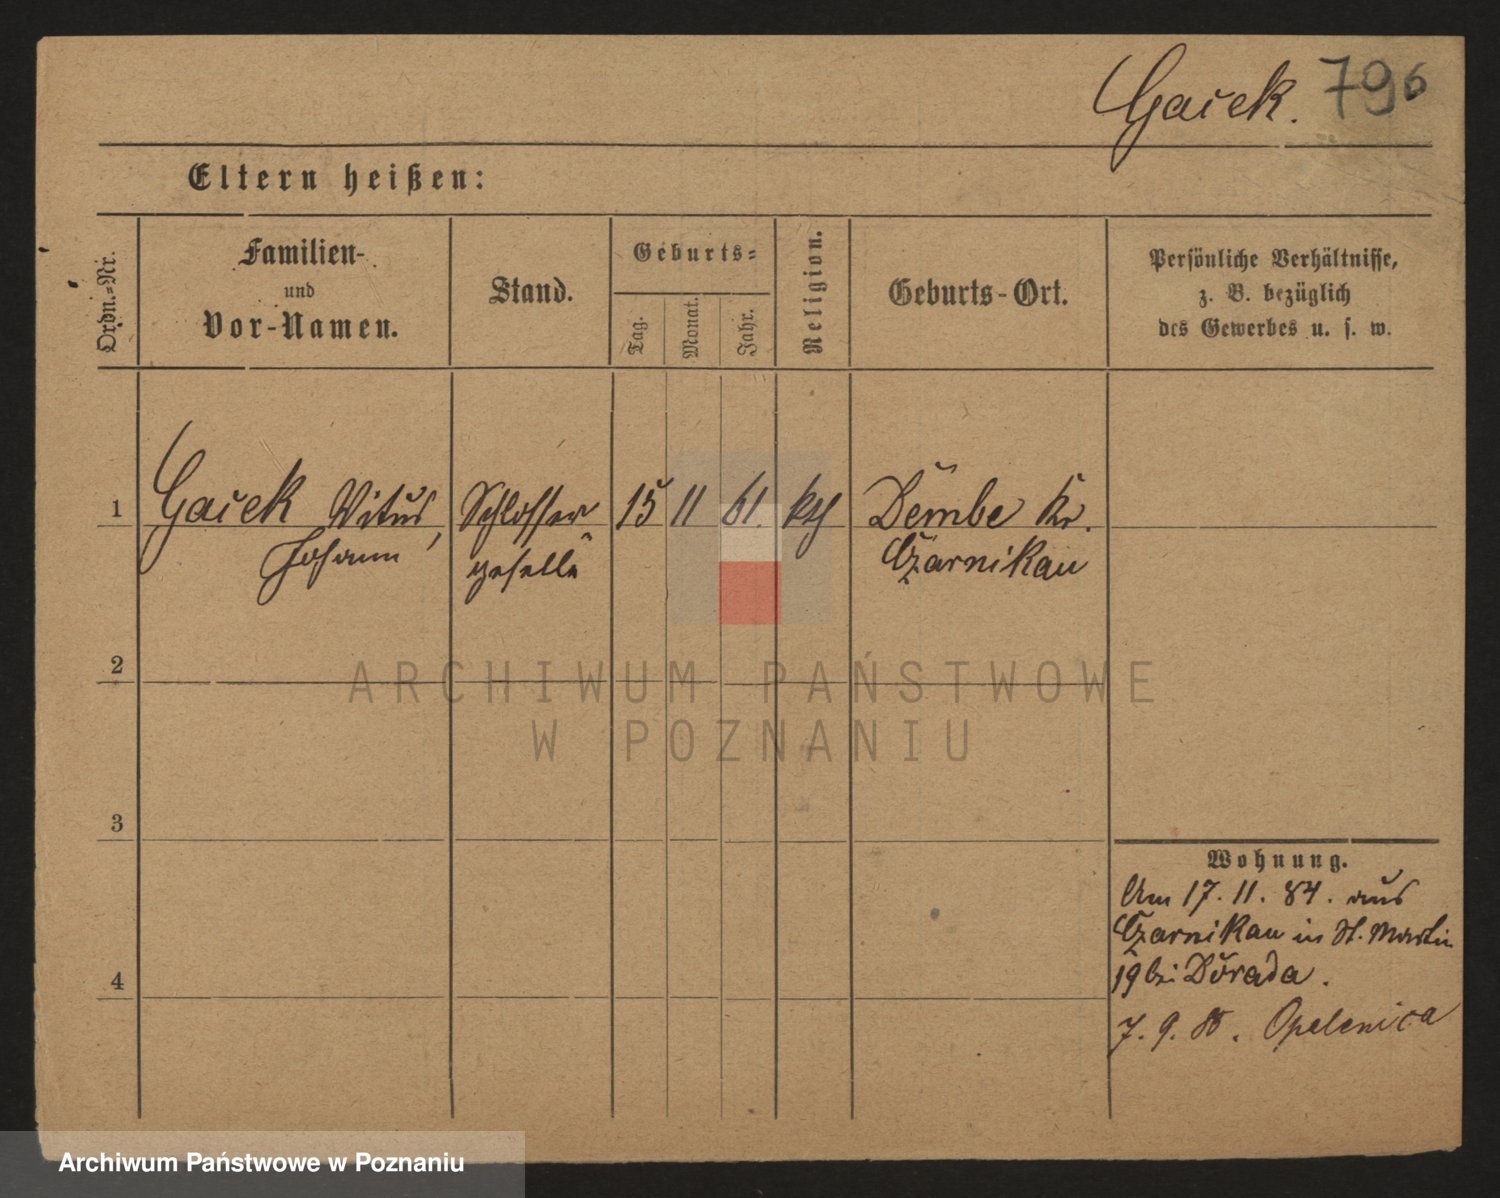 Gaiek. 796
Eltern heißen:
Ordn.=Nr.
Familien-
und
Vor-Namen.
Stand.
Geburts=
Tag.
Monat.
Jahr.
Religion.
Geburts-Ort.
Persönliche Verhältnisse,
z. B. bezüglich
des Gewerbes u. s. w.
1 Gaiek Vitus, Schlosser 15 11 61. kth Dembe Kr.
Johann geselle Czarnikau
2
3
4
Wohnung.
Am 17. 11. 84. aus
Czarnikau in St. Martin
19 bei Durada.
7. 9. 85. Opalenica
ARCHIWUM PAŃSTWOWE
W POZNANIU
Archiwum Państwowe w Poznaniu